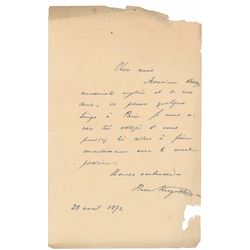 Cher ami
Monsieur
communiste anglais et de nos
amis, va passer quelque
temps à Paris. Je vous
serai très obligé si vous
pouviez l'aider à faire
connaissance avec le mouvement
parisien.
Bonnes
Pierre
28 avril 1892